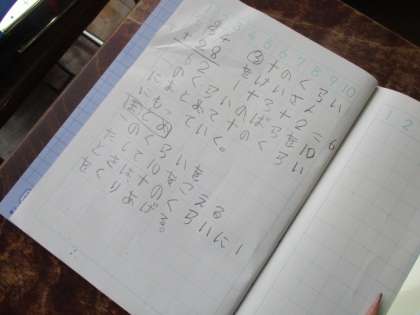 3 4 5 6 7 8 9 10
34
+28
62
③十のくらい
をけいさん
1+3+2=6
一のくらいのばらを10
にまとめて十のくらい
にもっていく。
まとめ
一のくらいを
たして10をこえる
ときは十のくらいに1
をくりあげる。
1 2